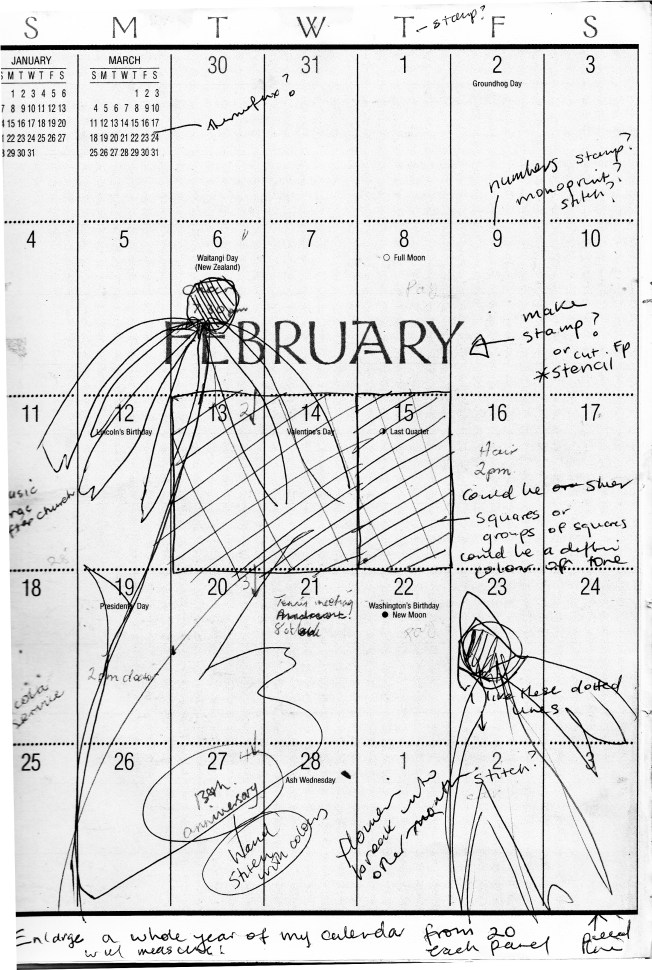 S M T W T F S
stamp?
JANUARY
S M T W T F S
1 2 3 4 5 6
7 8 9 10 11 12 13
14 15 16 17 18 19 20
21 22 23 24 25 26 27
28 29 30 31
MARCH
S M T W T F S
1 2 3
4 5 6 7 8 9 10
11 12 13 14 15 16 17
18 19 20 21 22 23 24
25 26 27 28 29 30 31
30 31 1 2 3
Groundhog Day
numbers stamp?
monoprint?
stitch?
4 5 6 7 8 9 10
Waitangi Day
(New Zealand)
Full Moon
FEBRUARY
make
stamp?
or cut
*stencil
11 12 13 14 15 16 17
Lincoln's Birthday
Valentine's Day
Last Quarter
Hair
2pm
could be
squares or
groups of squares
could be a
colour or tone
after church
18 19 20 21 22 23 24
Presidents' Day
Washington's Birthday
New Moon
Tennis meeting
2pm
service
I like these dotted
lines
25 26 27 28 1 2 3
Ash Wednesday
anniversary
Hand
Stitch
with colours
flowers
break into
other months
stitch?
Enlarge a whole year of my calendar from 20
will measure! each panel